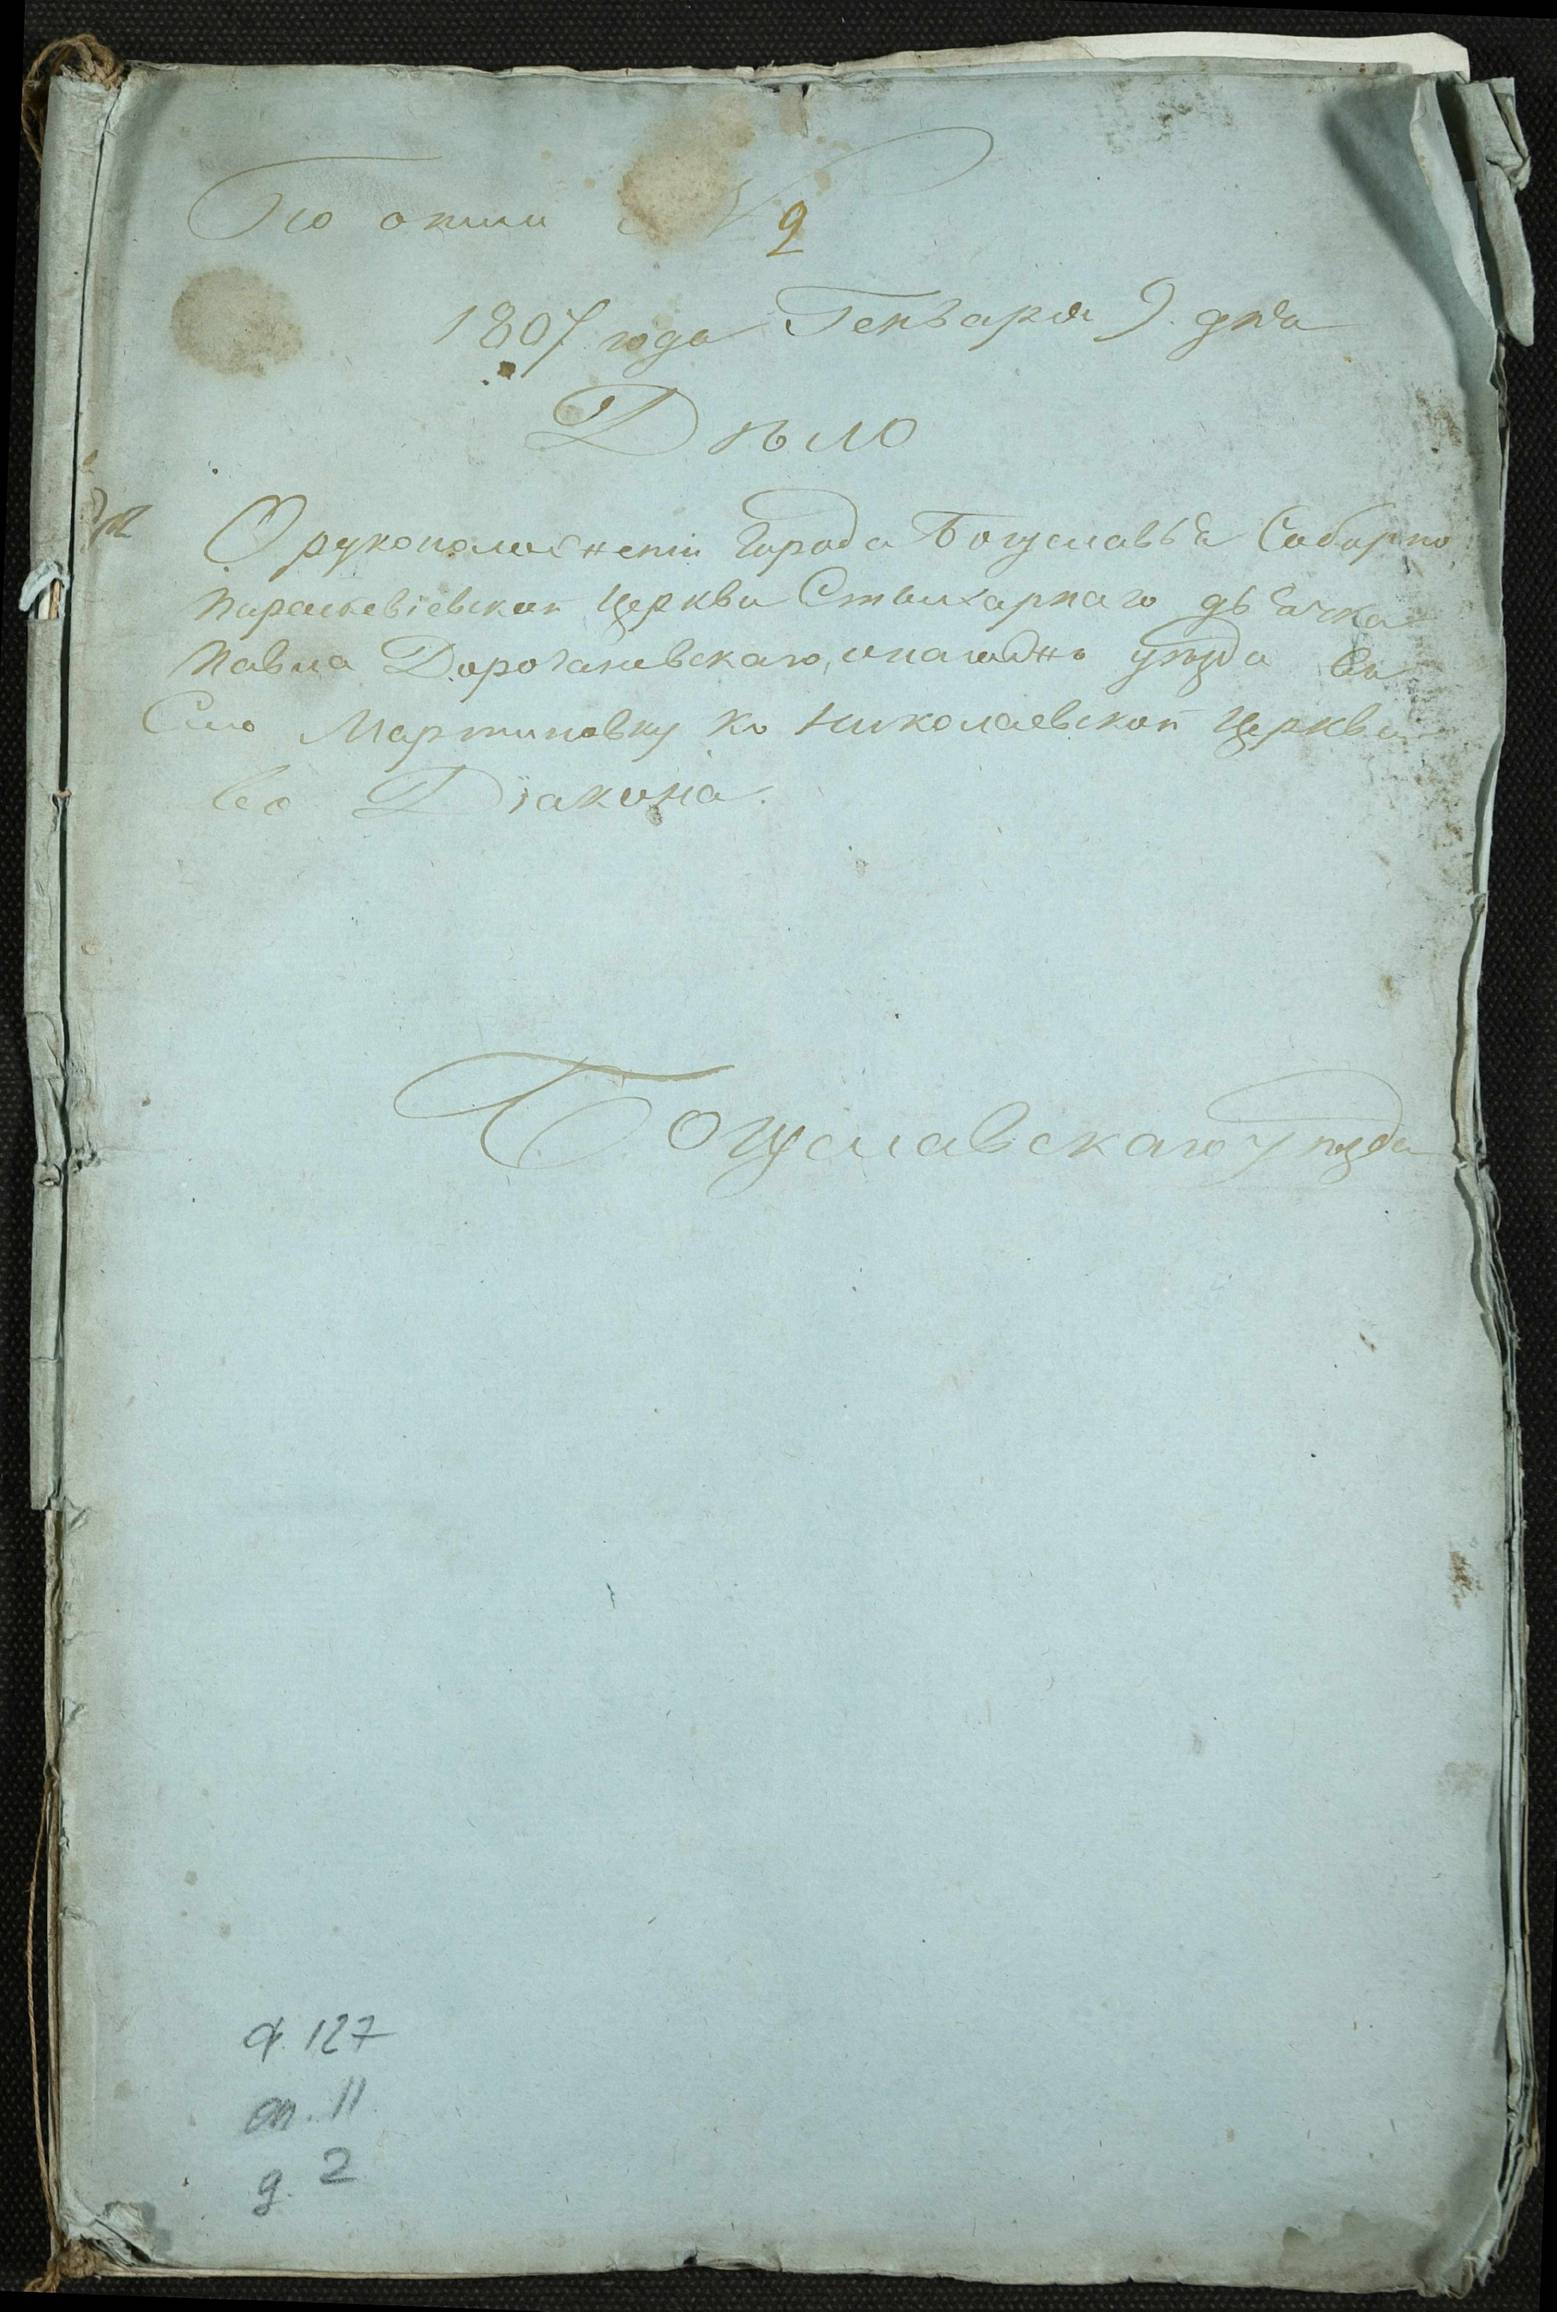 По описи № 2
1807 года Генваря 9. дня
Дѣло
О рукоположеніи города Богуславля Соборно
Параскевіевской Церкви Стихарнаго дьячка
Павла уѣзда въ
Село Мартиновку ко Николаевской Церкви
во Діакона.
Богуславскаго уѣзда
ф. 127
оп. 11
д. 2